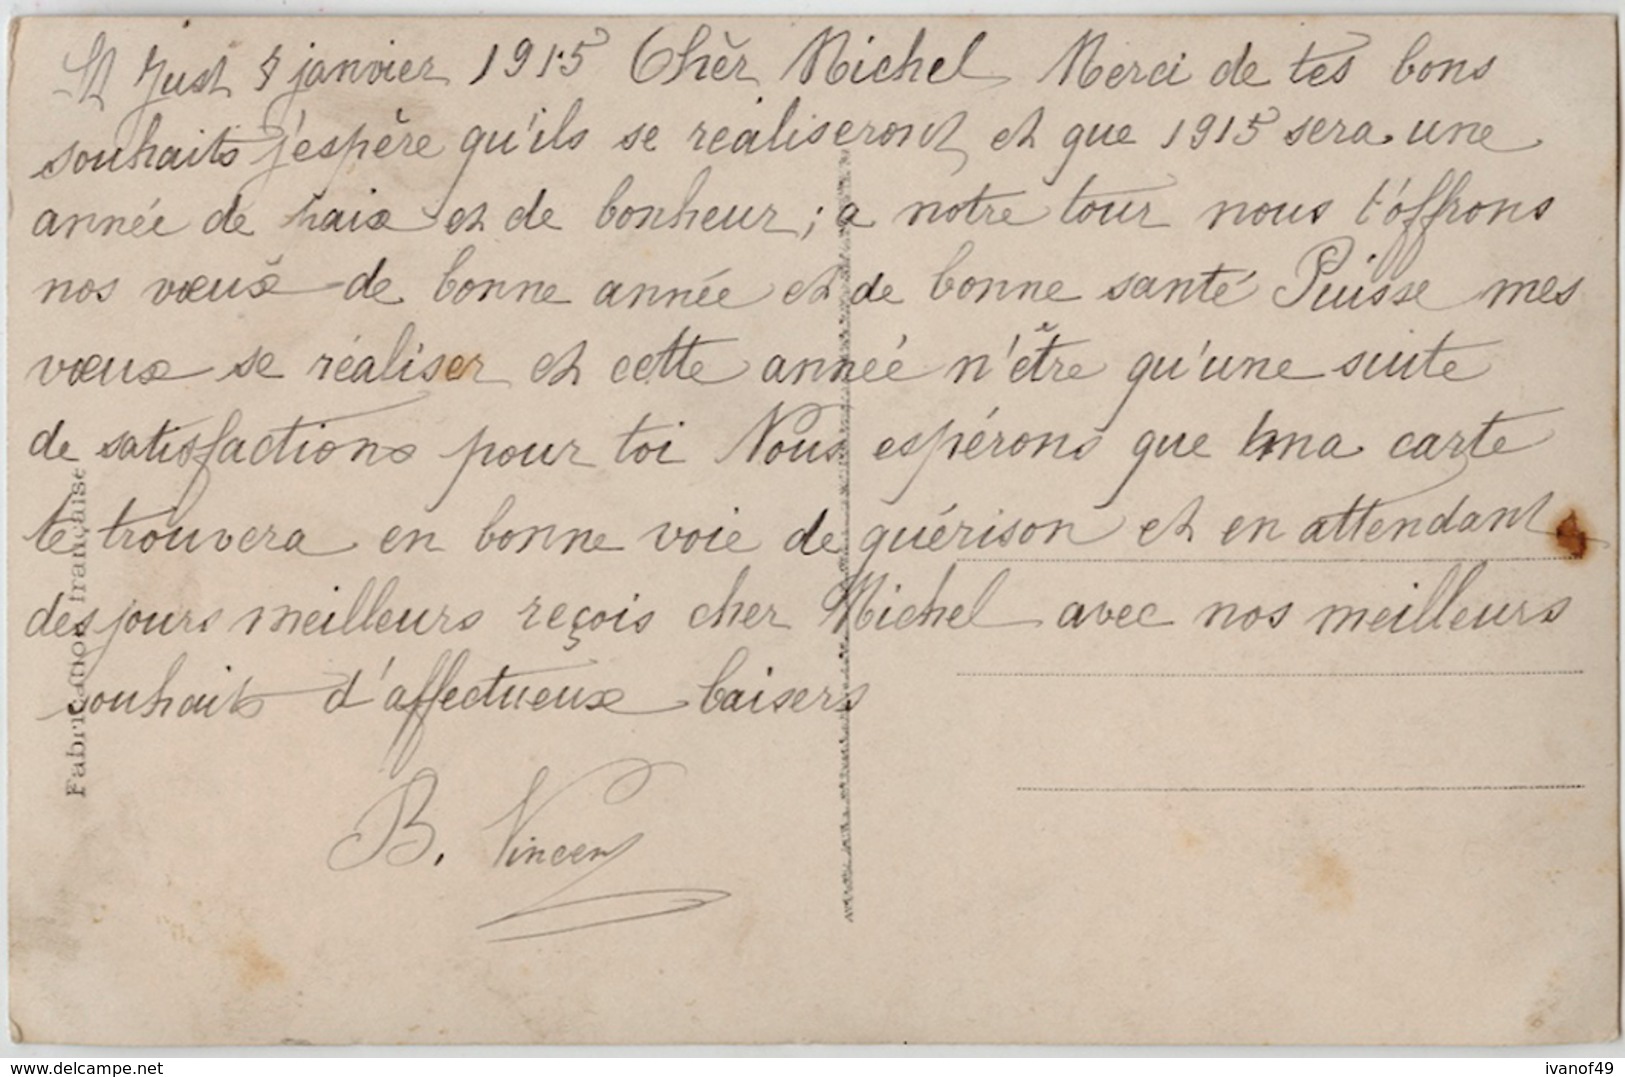 St Just 8 janvier 1915 Chèr Michel Merci de tes bons
souhaits j'espère qu'ils se réaliseront et que 1915 sera une
année de paix et de bonheur ; a notre tour nous t'offrons
nos vœux de bonne année et de bonne santé Puisse mes
vœux se réaliser et cette année n'être qu'une suite
de satisfactions pour toi Nous espérons que ma carte
te trouvera en bonne voie de guérison et en attendant
des jours meilleurs reçois cher Michel avec nos meilleurs
souhaits d'affectueux baisers
B. Vincent
Fabrication française
delcampe.net
ivanof49